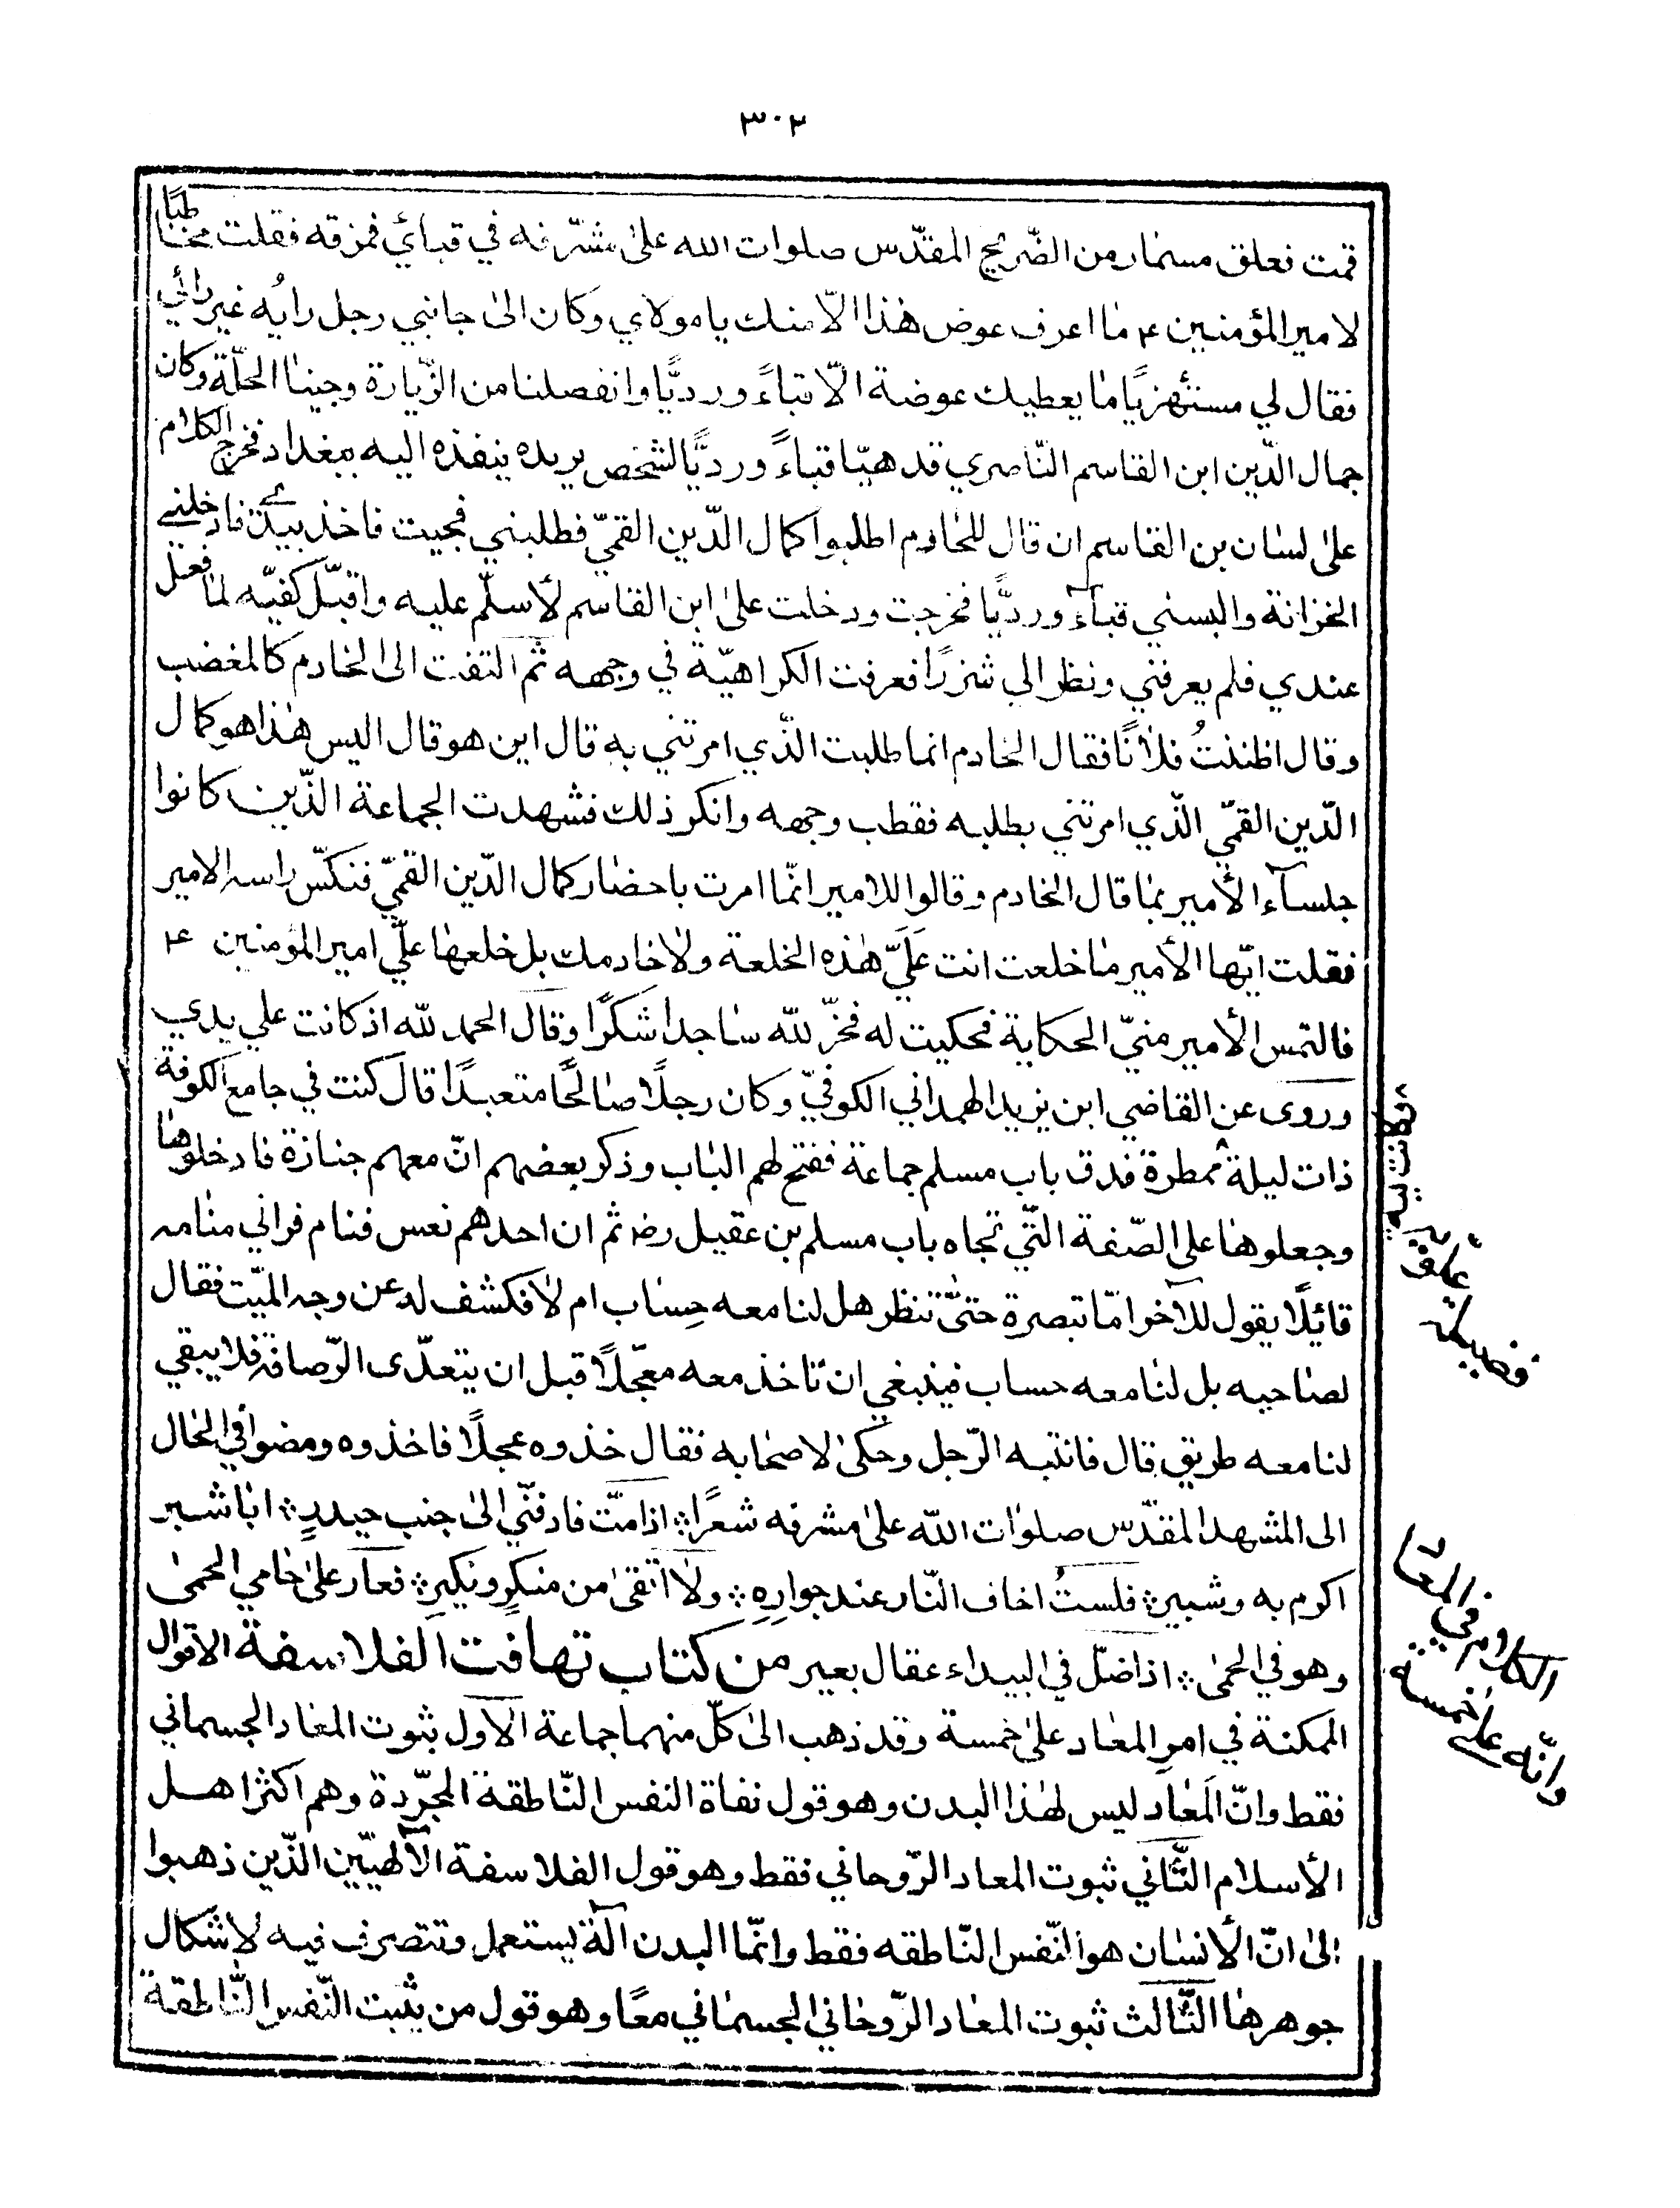 ٣٠٢
قمت فعلق مسمار من الضّريح المقدّس صلوات الله على مشرّفه في قبائي فمزقه فقلت مخاطبًا
لامير المؤمنين ع ما اعرف عوض هذا الّا منك يا مولاي وكان الى جانبي رجل رايه غير رائي
فقال لي مستهزيًا ما يعطيك عوضة الّا قباءً ورديًّا وانفصلنا من الزّيارة وجينا الحلّة وكان
جمال الدّين ابن القاسم النّاصري قد هيّا قباءً ورديًّا لشخص يريده ينفذه اليه ببغداد فخرج الكلام
على لسان بن القاسم ان قال للخادم اطلبوا كمال الدّين القمّي فطلبني فجيت فاخذ بيدي فادخلني
الخزانة والبسني قباء ورديًّا فخرجت ودخلت على ابن القاسم لأسلّم عليه واقبّل كفيّه لما فعل
عندي فلم يعرفني ونظر الي شزرًا فعرفت الكراهيّة في وجهه ثم التفت الى الخادم كالمغضب
وقال اظننتُ فلانًا فقال الخادم انما طلبت الذّي امرتني به قال اين هو قال اليس هذا هو كمال
الدّين القمّي الذّي امرتني بطلبه فقطب وجهه وانكر ذلك فشهدت الجماعة الذّين كانوا
جلسآء الأمير بما قال الخادم وقالوا للامير انّما امرت باحضار كمال الدّين القمّي فنكّس راسه الامير
فقلت ايّها الأمير ما خلعت انت عَلَيَّ هذه الخلعة ولا خادمك بل خلعها علّي امير المؤمنين ع
فالتمس الأمير منّي الحكاية فحكيت له فخرّ لله ساجدا شكرًا وقال الحمد لله اذ كانت علي يدي
وروى عن القاضي ابن يزيد الهمداني الكوفيّ وكان رجلًا صالحًا متعبدًا قال كنت في جامع الكوفة
ذات ليلة ممطرة فدق باب مسلم جماعة ففتح لهم الباب وذكر بعضهم انّ معهم جنازة فادخلوها
وجعلوها على الصّفة التّي تجاه باب مسلم بن عقيل رض ثم ان احدهم نعس فنام فراني منامه
قائلًا يقول للآخر امّا تبصرة حتىّ تنظر هل لنا معه حِساب ام لا فكشف له عن وجه الميّت فقال
لصاحبه بل لنا معه حساب فينبغي ان ناخذ معه معجّلًا قبل ان يتعدّى الرّصافة فلا يبقي
لنا معه طريق قال فانتبه الرّجل وحكى لاصحابه فقال خذوه عجلًا فاخذوه ومضوا في الحال
الى المشهد المقدّس صلوات الله على مشرفه شعرًا اذا متّ فادفنّي الى جنب حيدرٍ ابا شبر
اكرم به وشبير فلستُ اخاف النّار عند جوارِهِ ولا اتقى من منكرٍ ونكيرِ فعار على حامي الحمى
وهو في الحمى اذا ضلّ في البيداء عقال بعير من كتاب تهافت الفلاسفة الاقوال
الممكنة في امر المعاد على خمسة وقد ذهب الى كلّ منهما جماعة الاول ثبوت المعاد الجسماني
فقط وانّ المَعاد ليس لهذا البدن وهو قول نفاة النفس النّاطقة المجرّدة وهم اكثر اهل
الأسلام الثّاني ثبوت المعاد الرّوحاني فقط وهو قول الفلاسفة الآلهيّين الذّين ذهبوا
الى انّ الأنسان هو النّفس النّاطقه فقط وانّما البدن آلة يستعمل وتتصرف فيه لاشكال
جوهرها الثّالث ثبوت المعاد الرّوحاني الجسماني معًا وهو قول من يثبت النّفس النّاطقة
فضيلة
الكلام في المعاد
وانّه على خمسة